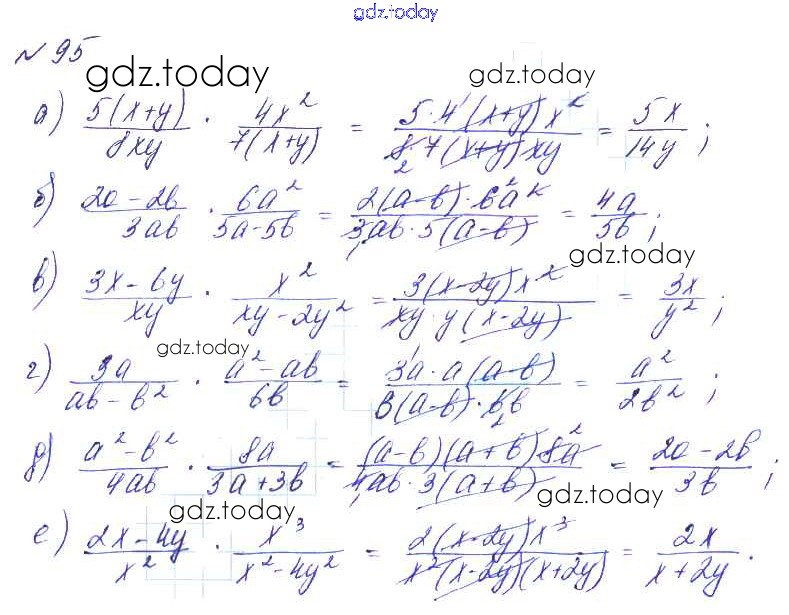 gdz.today
№ 95
gdz.today gdz.today
а) 5(x+y)/8xy · 4x²/7(x+y) = 5·4(x+y)x²/8·7(x+y)xy = 5x/14y ;
б) 2a-2b/3ab · 6a²/5a-5b = 2(a-b)·6a²/3ab·5(a-b) = 4a/5b ;
gdz.today
в) 3x-6y/xy · x²/xy-2y² = 3(x-2y)x²/xy·y(x-2y) = 3x/y² ;
gdz.today
г) 3a/ab-b² · a²-ab/6b = 3a·a(a-b)/b(a-b)·6b = a²/2b² ;
д) a²-b²/4ab · 8a/3a+3b = (a-b)(a+b)8a/4ab·3(a+b) = 2a-2b/3b ;
gdz.today gdz.today
е) 2x-4y/x² · x³/x²-4y² = 2(x-2y)x³/x²(x-2y)(x+2y) = 2x/x+2y .